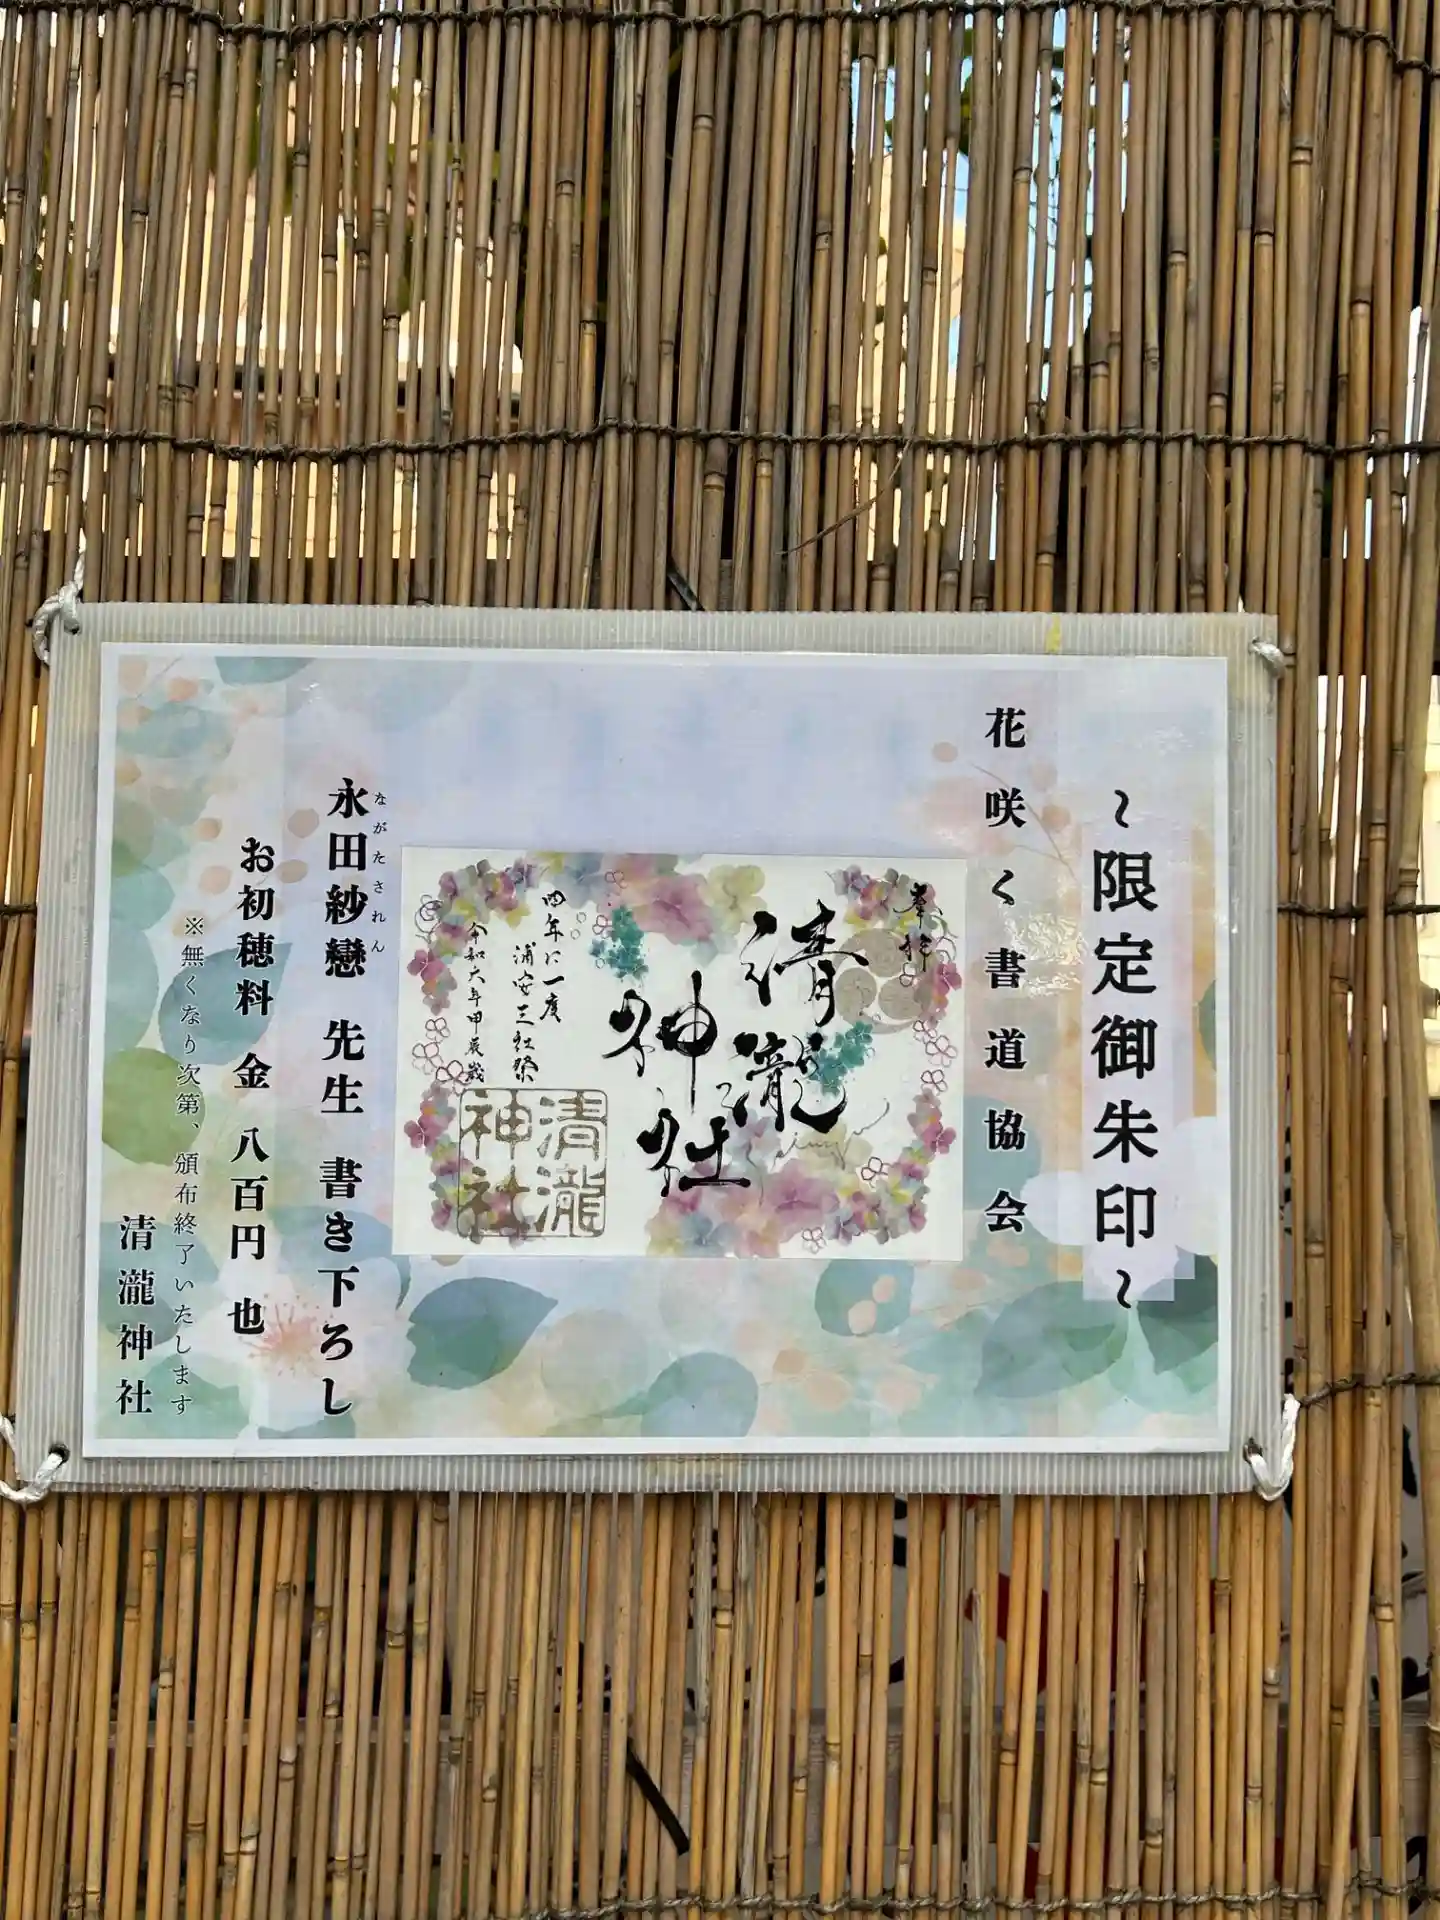 ~限定御朱印~
花咲く書道協会
奉拝
清瀧
神社
四年に一度
浦安三社祭
令和六年甲辰歳
清瀧
神社
永田紗戀 先生 書き下ろし
ながたされん
お初穂料 金 八百円 也
※無くなり次第、頒布終了いたします
清瀧神社